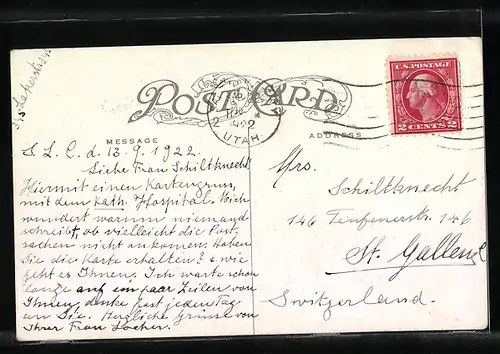 U.S. POSTAGE
2 CENTS 2
POST CARD
1922
UTAH
MESSAGE
ADDRESS
S. L. C. d. 13. 9. 1922.
Liebe Frau Schiltknecht
Hiermit einen Kartengruss,
mit dem kath. Hospital. Mich
wundert warum niemand
schreibt, ob vielleicht die Post-
sachen nicht ankomen. Haben
Sie die Karte erhalten? u. wie
geht es Ihnen. Ich warte schon
lange auf ein paar Zeilen von
Ihnen, denke fast jeden Tag
an Sie. Herzliche Grüsse von
Ihrer Frau Locher.
Mrs.
Schiltknecht
146 Teufenerstr. 146
St. Gallen
Switzerland.